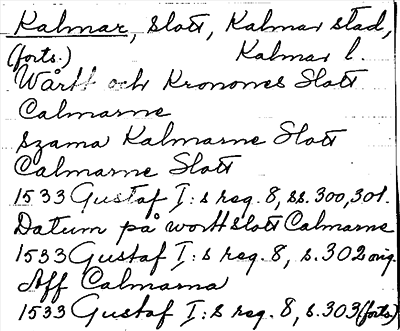 Kalmar, slott, Kalmar stad,
(forts.) Kalmar l.
Wårtt och Kronones Slott
Calmarne
szama Kalmarne Slott
Calmarne Slott
1533 Gustaf I:s reg. 8, ss. 300, 301.
Datum på wortt slott Calmarne
1533 Gustaf I:s reg. 8, s. 302 orig.
Aff Calmarna
1533 Gustaf I:s reg. 8, s. 303 (forts.)